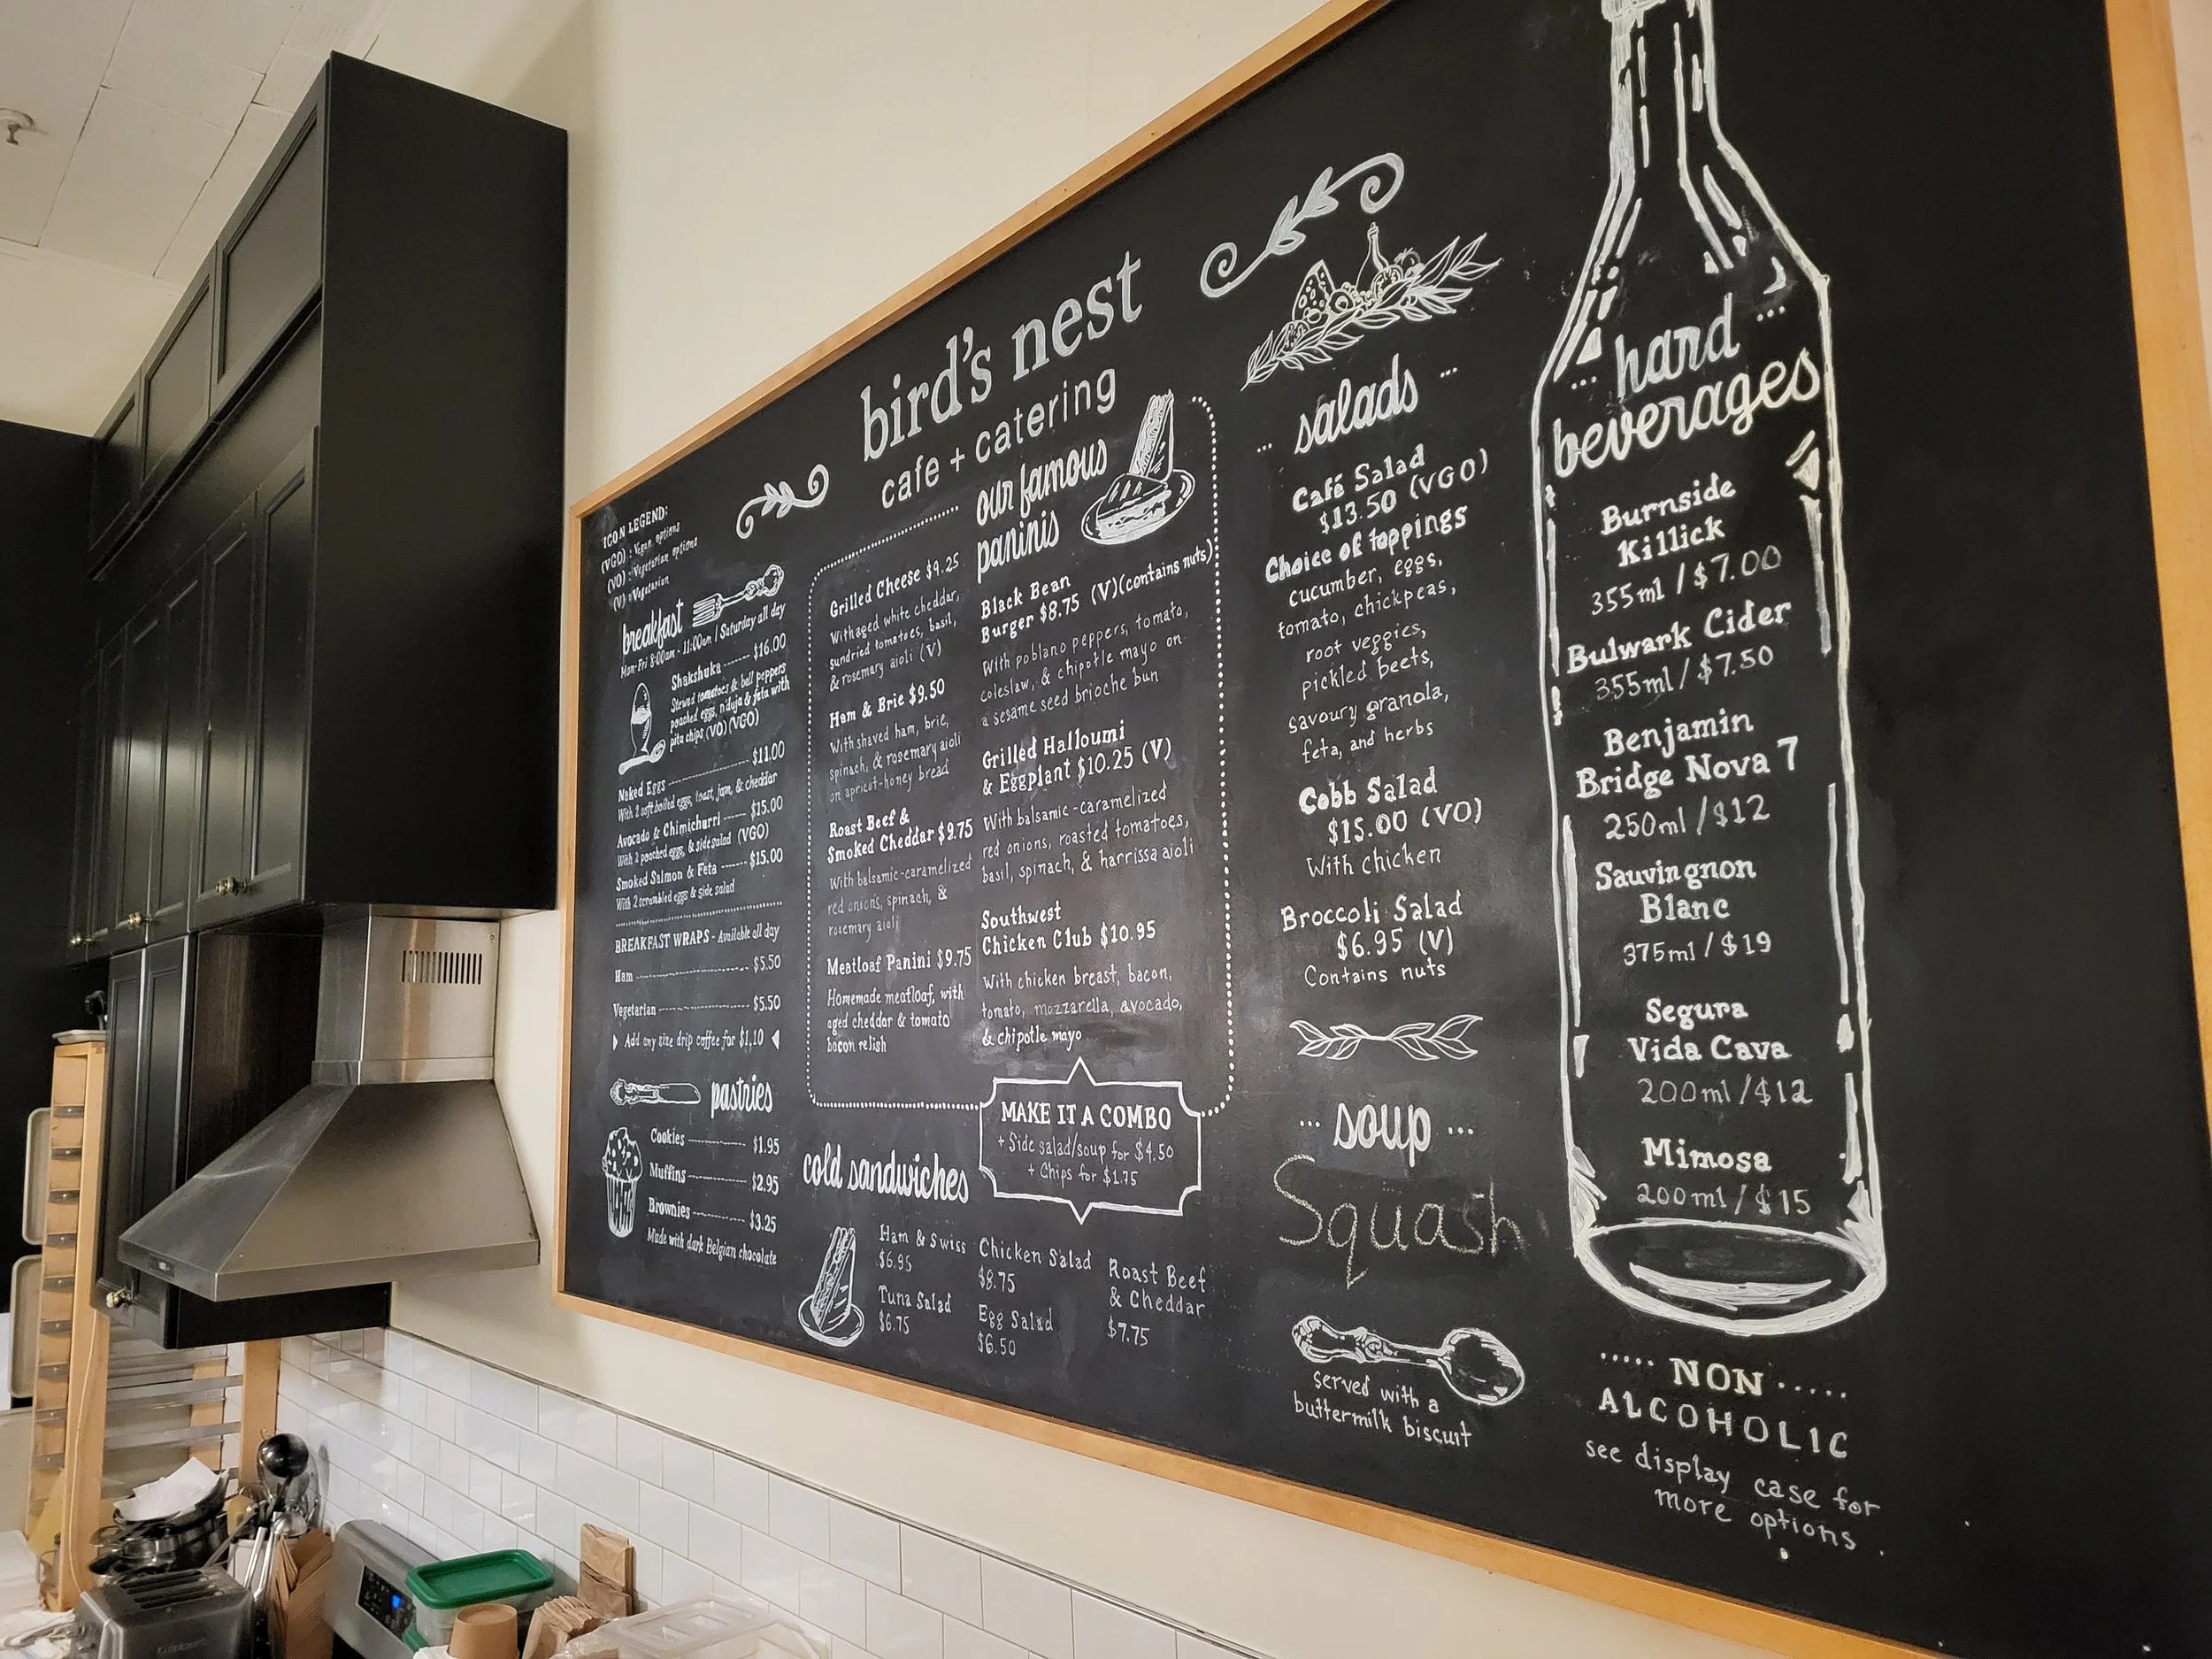 bird's nest
cafe + catering
ICON LEGEND:
(VGO) : Vegan options
(VO) : Vegetarian options
(V) : Vegetarian
breakfast
Mon-Fri 8:00am - 11:00am | Saturday all day
Shakshuka $16.00
Stewed tomatoes & bell peppers
poached eggs, n'duja & feta with
pita chips (VO) (VGO)
Naked Eggs $11.00
With 2 soft boiled eggs, toast, jam, & cheddar
Avocado & Chimichurri $15.00
With 2 poached eggs, & side salad (VGO)
Smoked Salmon & Feta $15.00
With 2 scrambled eggs & side salad
BREAKFAST WRAPS - Available all day
Ham $5.50
Vegetarian $5.50
Add any size drip coffee for $1.10
pastries
Cookies $1.95
Muffins $2.95
Brownies $3.25
Made with dark Belgian chocolate
our famous
paninis
Grilled Cheese $9.25
With aged white cheddar,
sundried tomatoes, basil,
& rosemary aioli (V)
Ham & Brie $9.50
With shaved ham, brie,
spinach, & rosemary aioli
on apricot-honey bread
Roast Beef &
Smoked Cheddar $9.75
With balsamic-caramelized
red onions, spinach, &
rosemary aioli
Meatloaf Panini $9.75
Homemade meatloaf, with
aged cheddar & tomato
bacon relish
Black Bean
Burger $8.75 (V)(contains nuts)
With poblano peppers, tomato,
coleslaw, & chipotle mayo on
a sesame seed brioche bun
Grilled Halloumi
& Eggplant $10.25 (V)
With balsamic-caramelized
red onions, roasted tomatoes,
basil, spinach, & harrissa aioli
Southwest
Chicken Club $10.95
With chicken breast, bacon,
tomato, mozzarella, avocado,
& chipotle mayo
MAKE IT A COMBO
+ Side salad/soup for $4.50
+ Chips for $1.75
cold sandwiches
Ham & Swiss
$6.95
Tuna Salad
$6.75
Chicken Salad
$8.75
Egg Salad
$6.50
Roast Beef
& Cheddar
$7.75
... salads ...
Café Salad
$13.50 (VGO)
Choice of toppings
cucumber, eggs,
tomato, chickpeas,
root veggies,
pickled beets,
savoury granola,
feta, and herbs
Cobb Salad
$15.00 (VO)
With chicken
Broccoli Salad
$6.95 (V)
Contains nuts
... soup ...
Squash
served with a
buttermilk biscuit
... hard ...
beverages
Burnside
Killick
355ml / $7.00
Bulwark Cider
355ml / $7.50
Benjamin
Bridge Nova 7
250ml / $12
Sauvingnon
Blanc
375ml / $19
Segura
Vida Cava
200ml / $12
Mimosa
200ml / $15
..... NON .....
ALCOHOLIC
see display case for
more options.